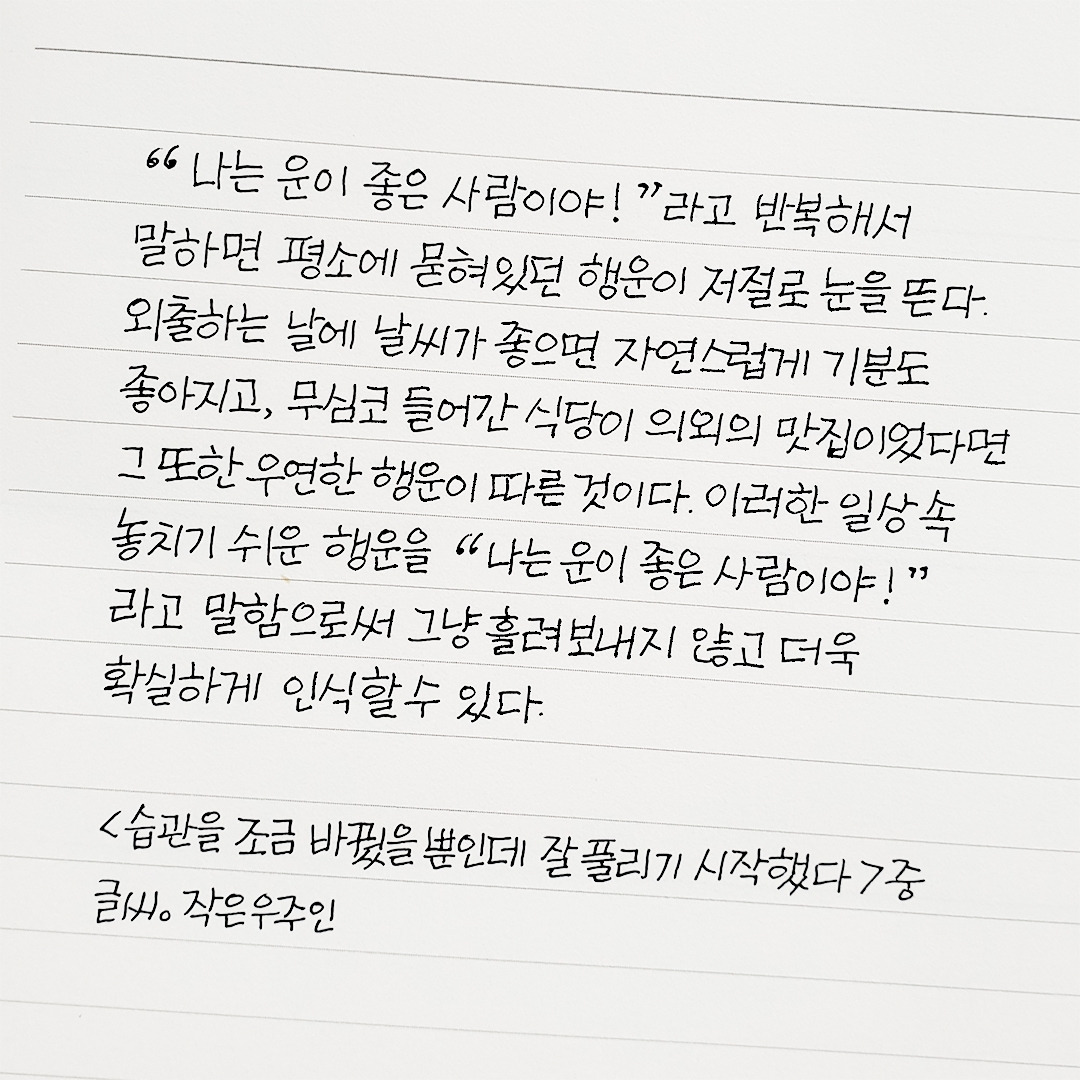 “나는 운이 좋은 사람이야!”라고 반복해서
말하면 평소에 묻혀있던 행운이 저절로 눈을 뜬다.
외출하는 날에 날씨가 좋으면 자연스럽게 기분도
좋아지고, 무심코 들어간 식당이 의외의 맛집이었다면
그 또한 우연한 행운이 따른 것이다. 이러한 일상 속
놓치기 쉬운 행운을 “나는 운이 좋은 사람이야!”
라고 말함으로써 그냥 흘려보내지 않고 더욱
확실하게 인식할 수 있다.
<습관을 조금 바꿨을 뿐인데 잘 풀리기 시작했다>중
글씨。작은우주인